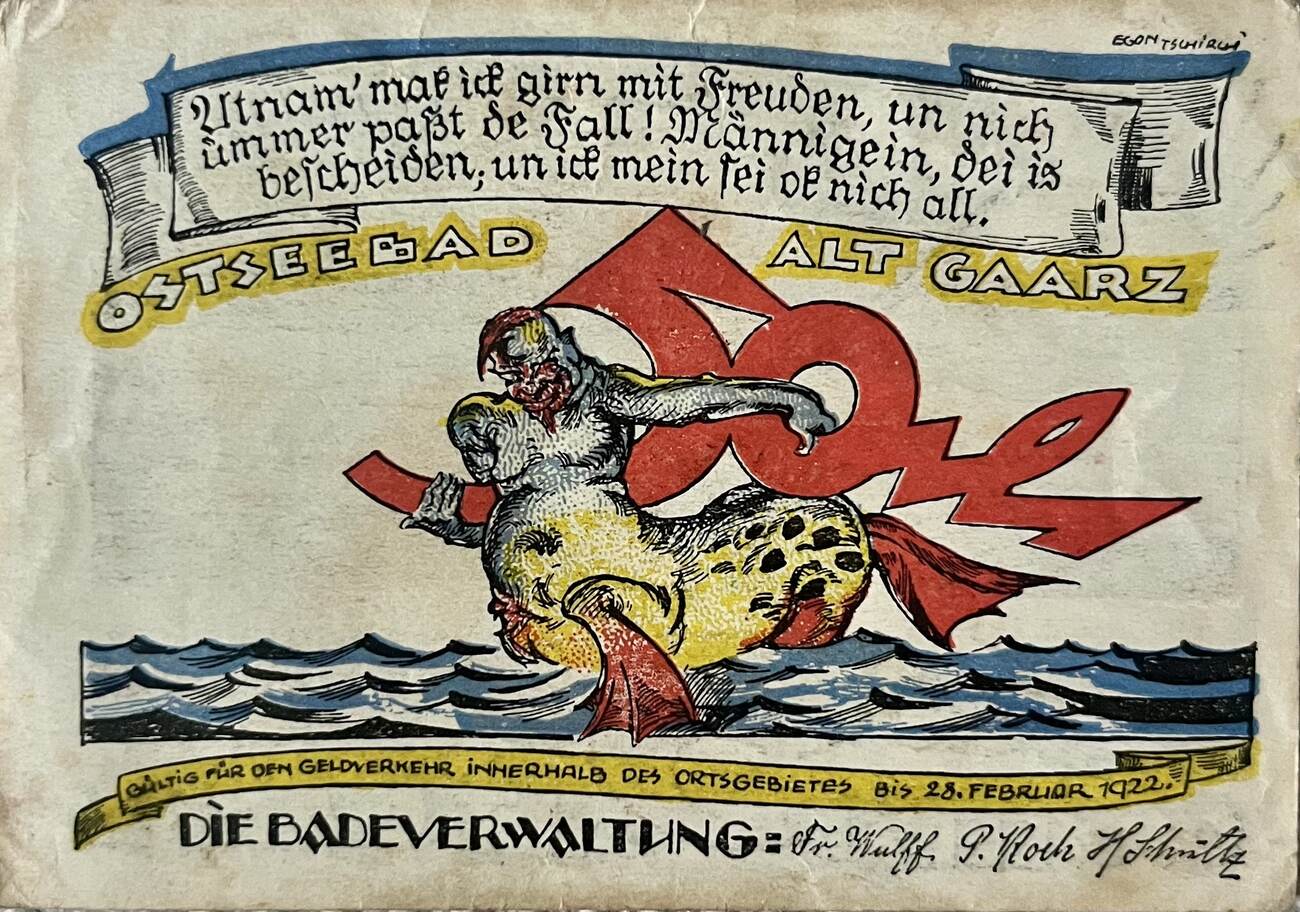 EGON TSCHIRCH
Utnam' mak ick girn mit Freuden, un nich
ümmer paßt de Fall! Männigein, dei is
bescheiden, un ick mein sei ok nich all.
OSTSEEBAD ALT GAARZ
50 Pf
GÜLTIG FÜR DEN GELDVERKEHR INNERHALB DES ORTSGEBIETES BIS 28. FEBRUAR 1922.
DIE BADEVERWALTUNG: Fr. Wulff. P. Koch H Schultz